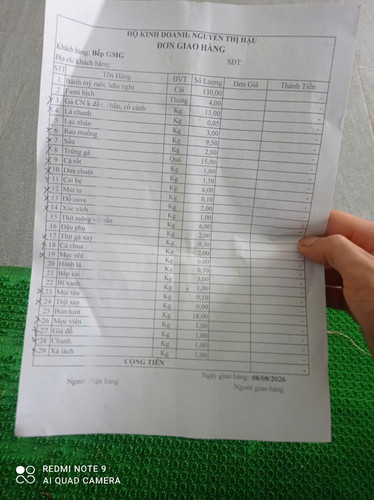 HỘ KINH DOANH: NGUYỄN THỊ HẬU
ĐƠN GIAO HÀNG
Khách hàng: Bếp GMG
Địa chỉ khách hàng: SĐT:
STT Tên Hàng ĐVT Số Lượng Đơn Giá Thành Tiền
1 Bánh mỳ ruốc hữu nghị Cái 130,00
2 Fami bịch Thùng 4,00
3 Gà CN k đầu, cổ cánh Kg 13,00
4 Lá chanh Kg 0,05
5 Lạc nhân Kg 3,00
6 Rau muống Kg 9,50
7 Sấu Kg 2,00
8 Trứng gà Quả 15,00
9 Cà rốt Kg 1,00
10 Dưa chuột Kg 1,50
11 Cải bẹ Kg 6,00
12 Mùi ta Kg 0,10
13 Đỗ cove Kg 2,00
14 Xúc xích Kg 1,00
15 Thịt mông sấn Kg 6,00
16 Đậu phụ Kg 2,00
17 Thịt gà xay Kg
18 Cà chua Kg 2,00
19 Mọc nhĩ Kg 0,00
20 Hành lá Kg 0,30
21 Bắp cải Kg 3,00
22 Bí xanh Kg 1,00
23 Mùi tàu Kg 0,10
24 Thịt xay Kg 0,00
25 Bún tươi Kg 18,00
26 Mọc viên Kg 1,00
27 Giá đỗ Kg 1,00
28 Chanh Kg 1,00
29 Xà lách Kg 1,00
CỘNG TIỀN
Ngày giao hàng: 08/08/2026
Người nhận hàng Người giao hàng
REDMI NOTE 9
AI QUAD CAMERA